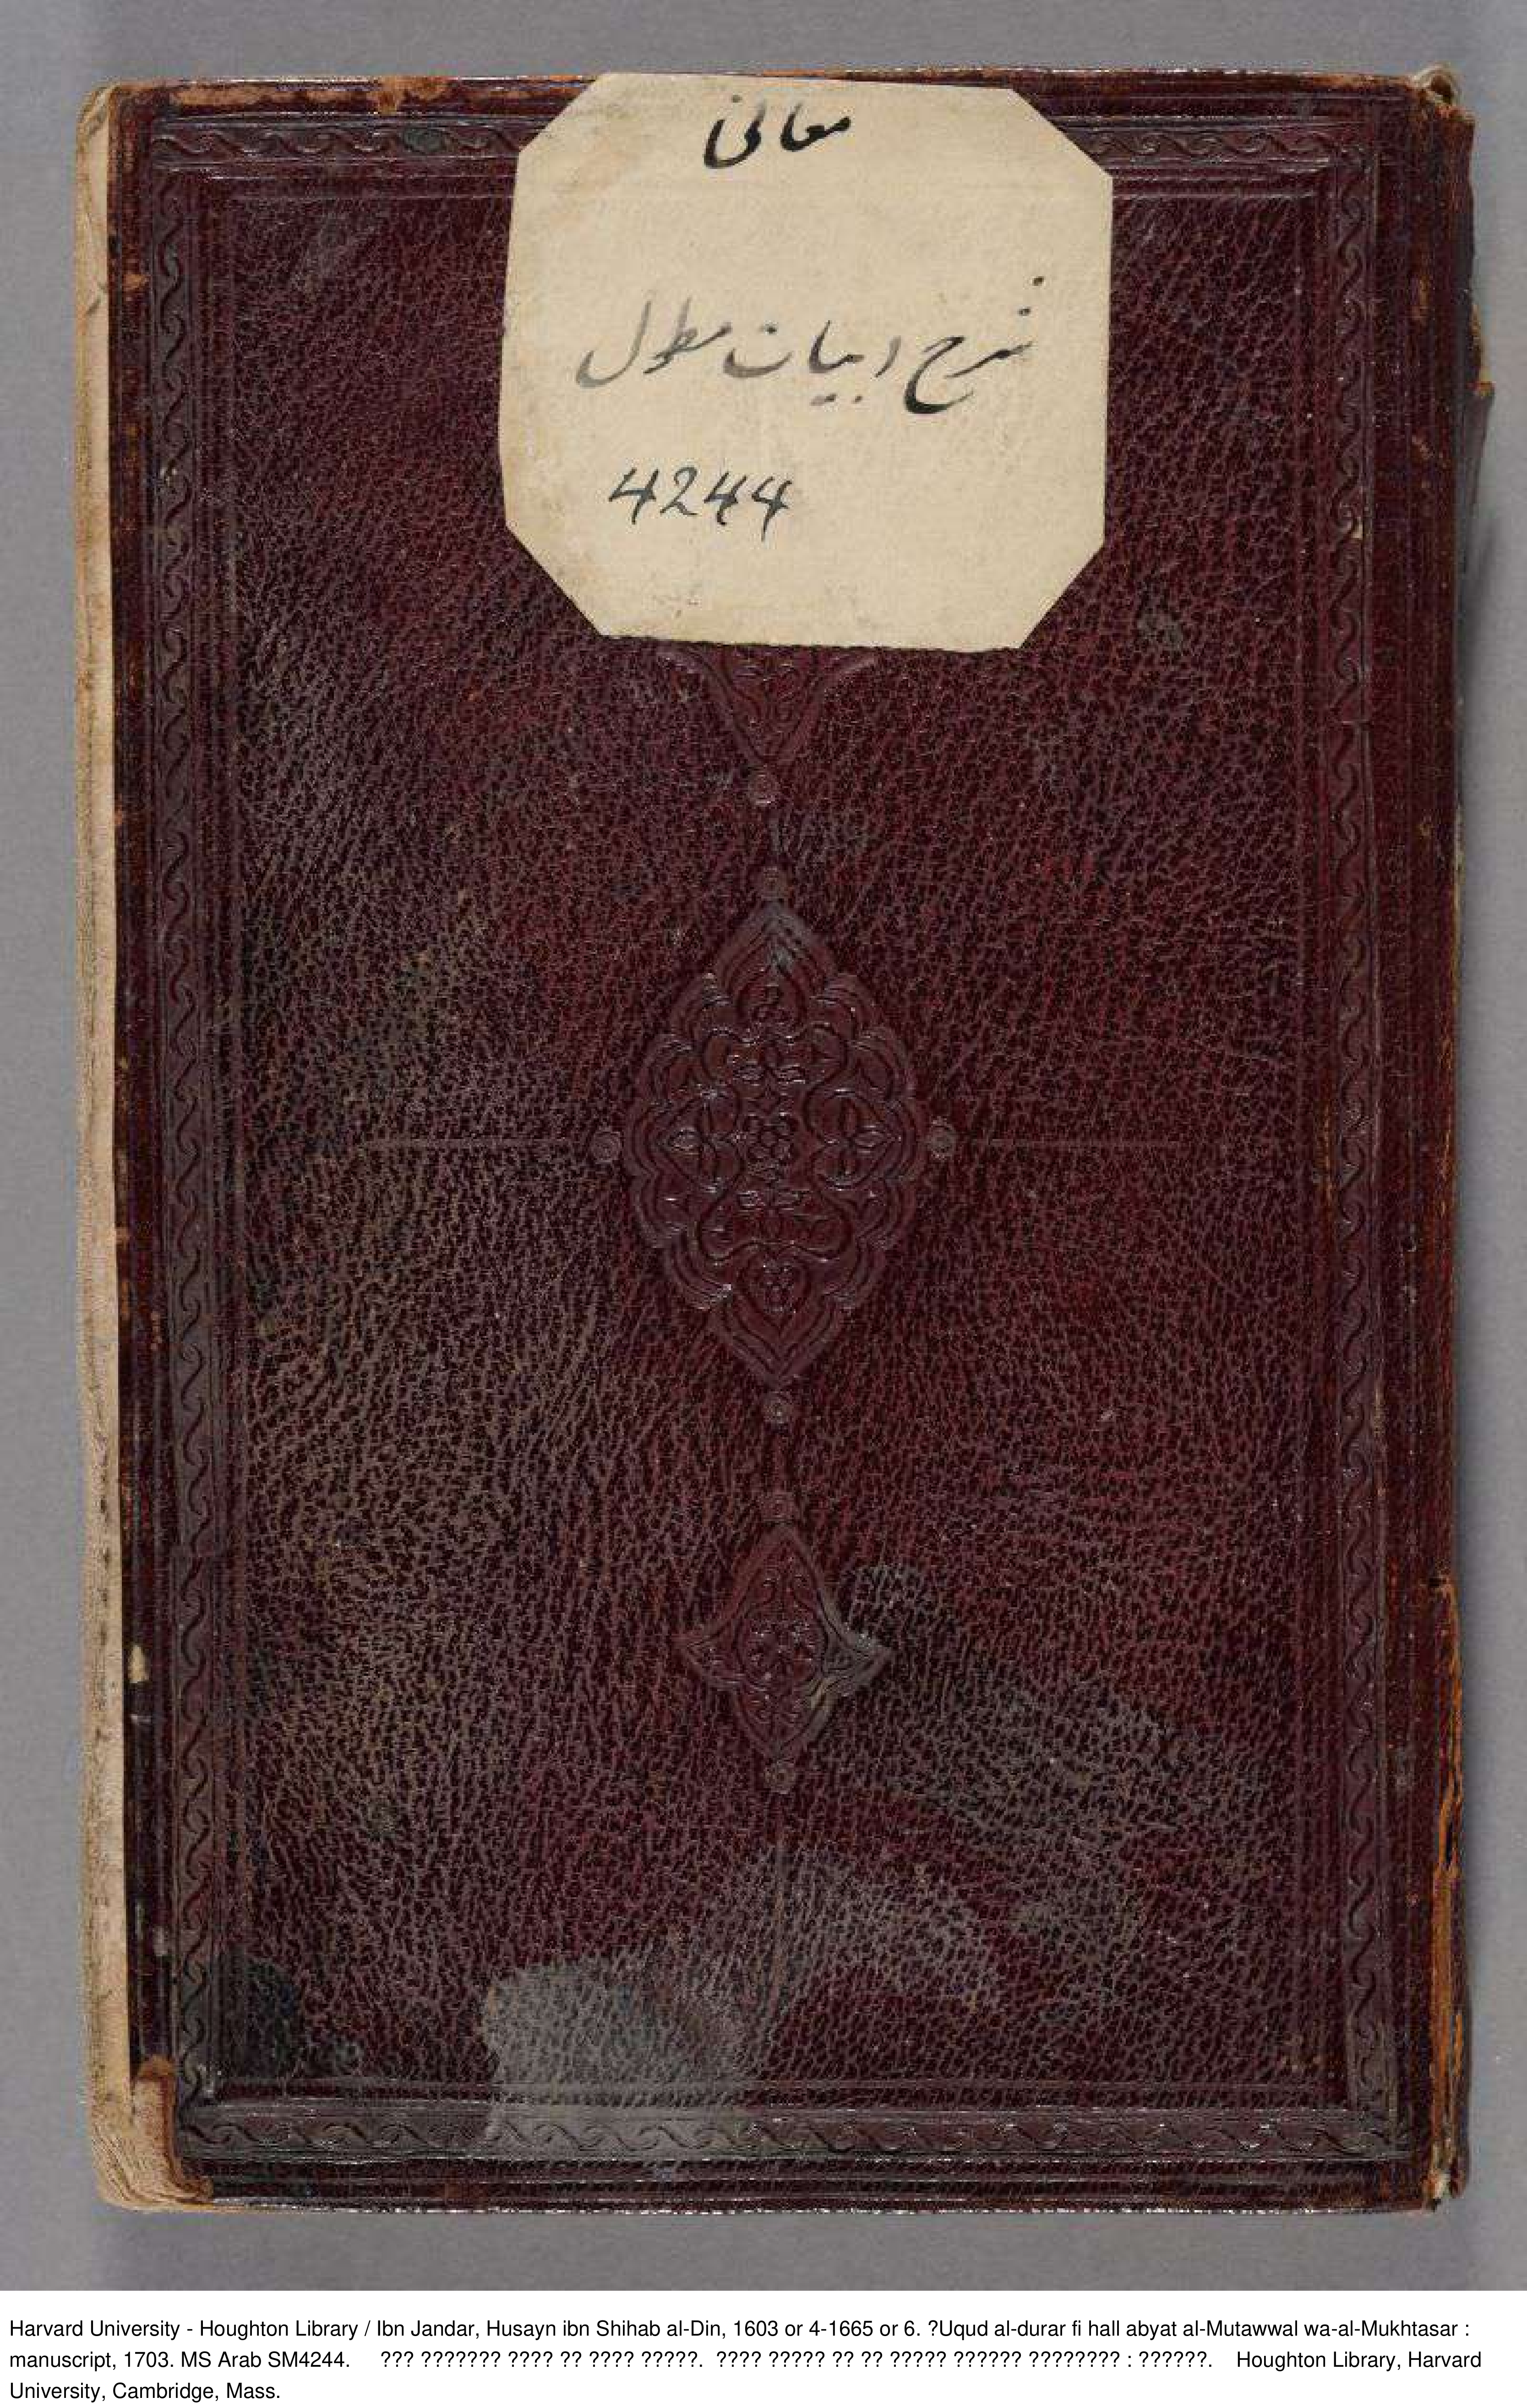 معانى
شرح ابيات مطول
4244
Harvard University - Houghton Library / Ibn Jandar, Husayn ibn Shihab al-Din, 1603 or 4-1665 or 6. ?Uqud al-durar fi hall abyat al-Mutawwal wa-al-Mukhtasar :
manuscript, 1703. MS Arab SM4244. ??? ??????? ???? ?? ???? ?????. ???? ????? ?? ?? ????? ?????? ???????? : ??????. Houghton Library, Harvard
University, Cambridge, Mass.